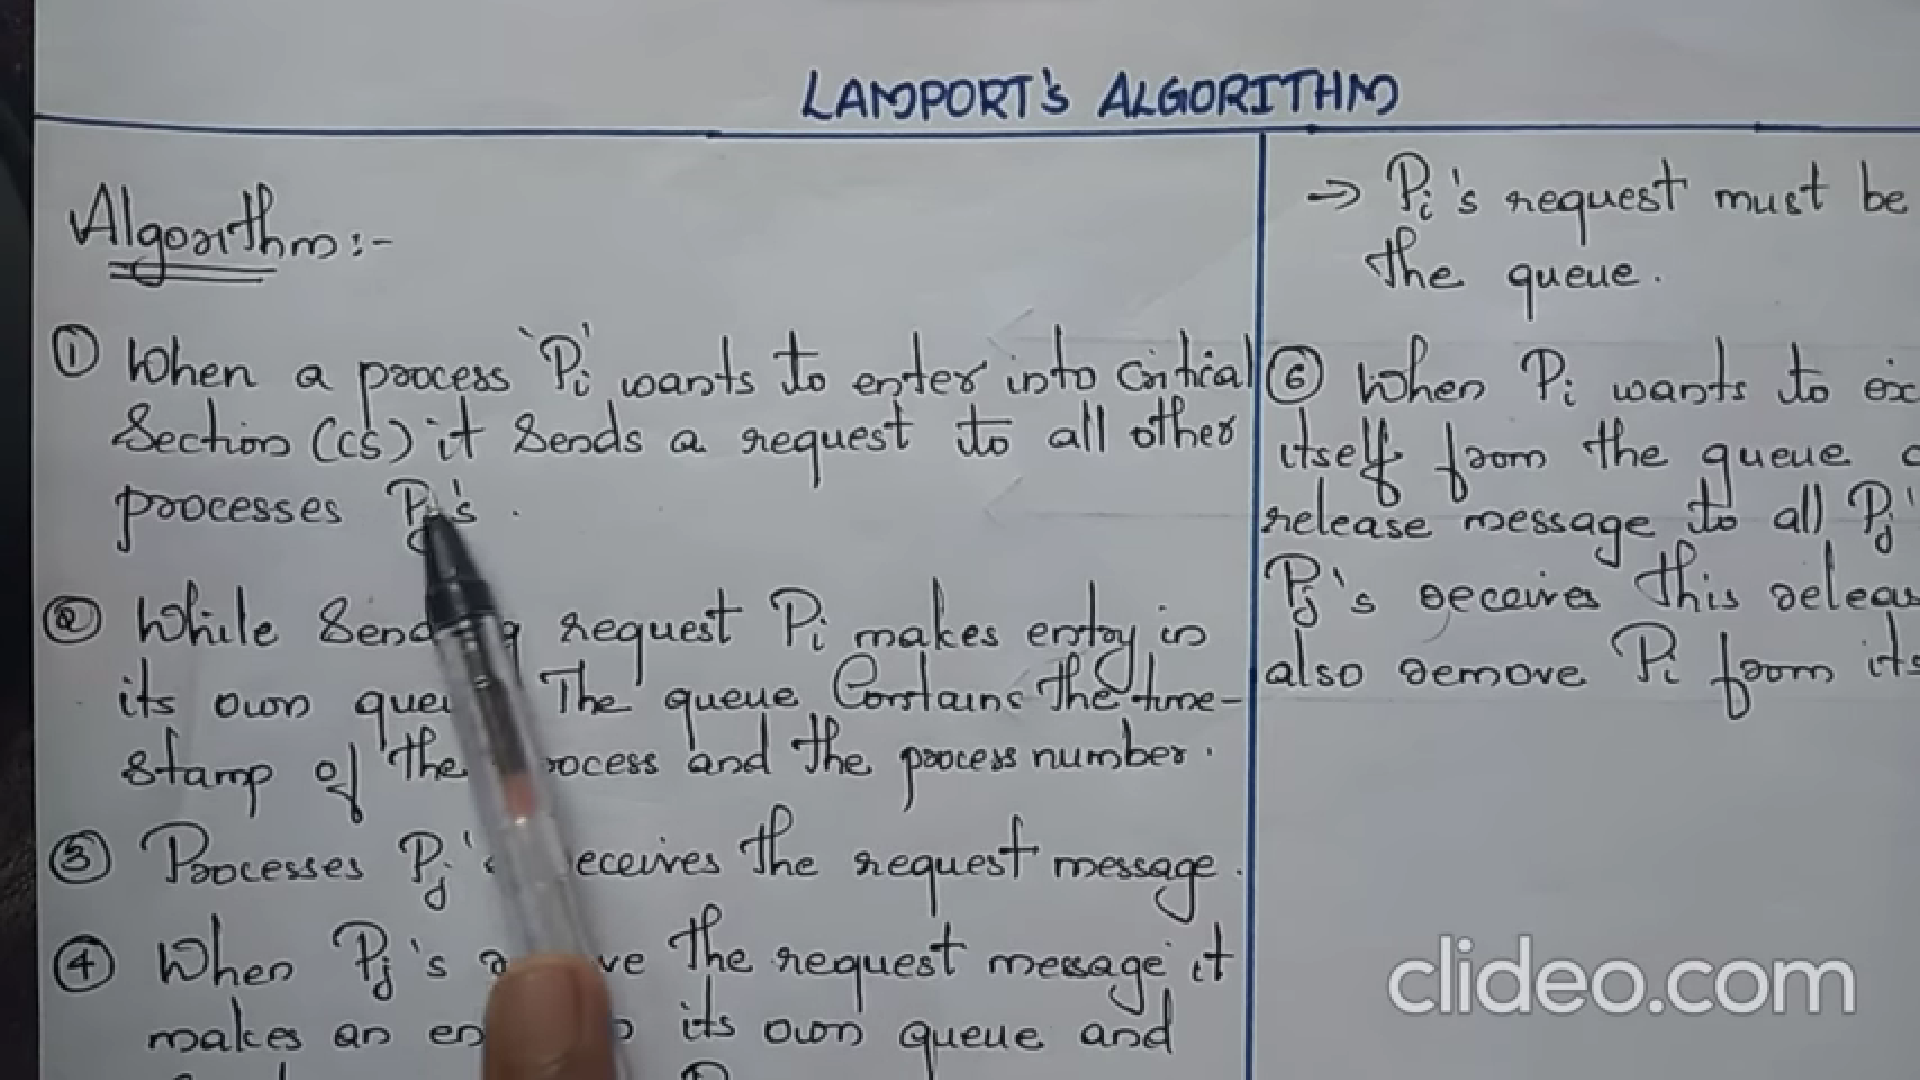 LAMPORT's ALGORITHM
Algorithm:-
① When a process 'Pi' wants to enter into Critical
Section (CS) it sends a request to all other
processes Pj's.
② While sending request Pi makes entry in
its own queue The queue Contains the time-
stamp of the process and the process number.
③ Processes Pj's receives the request message.
④ When Pj's receive the request message it
makes an its own queue and
→ Pi's request must be
the queue.
⑥ When Pi wants to
itself from the queue
release message to all Pj'
Pj's receives this
also remove Pi from its
clideo.com